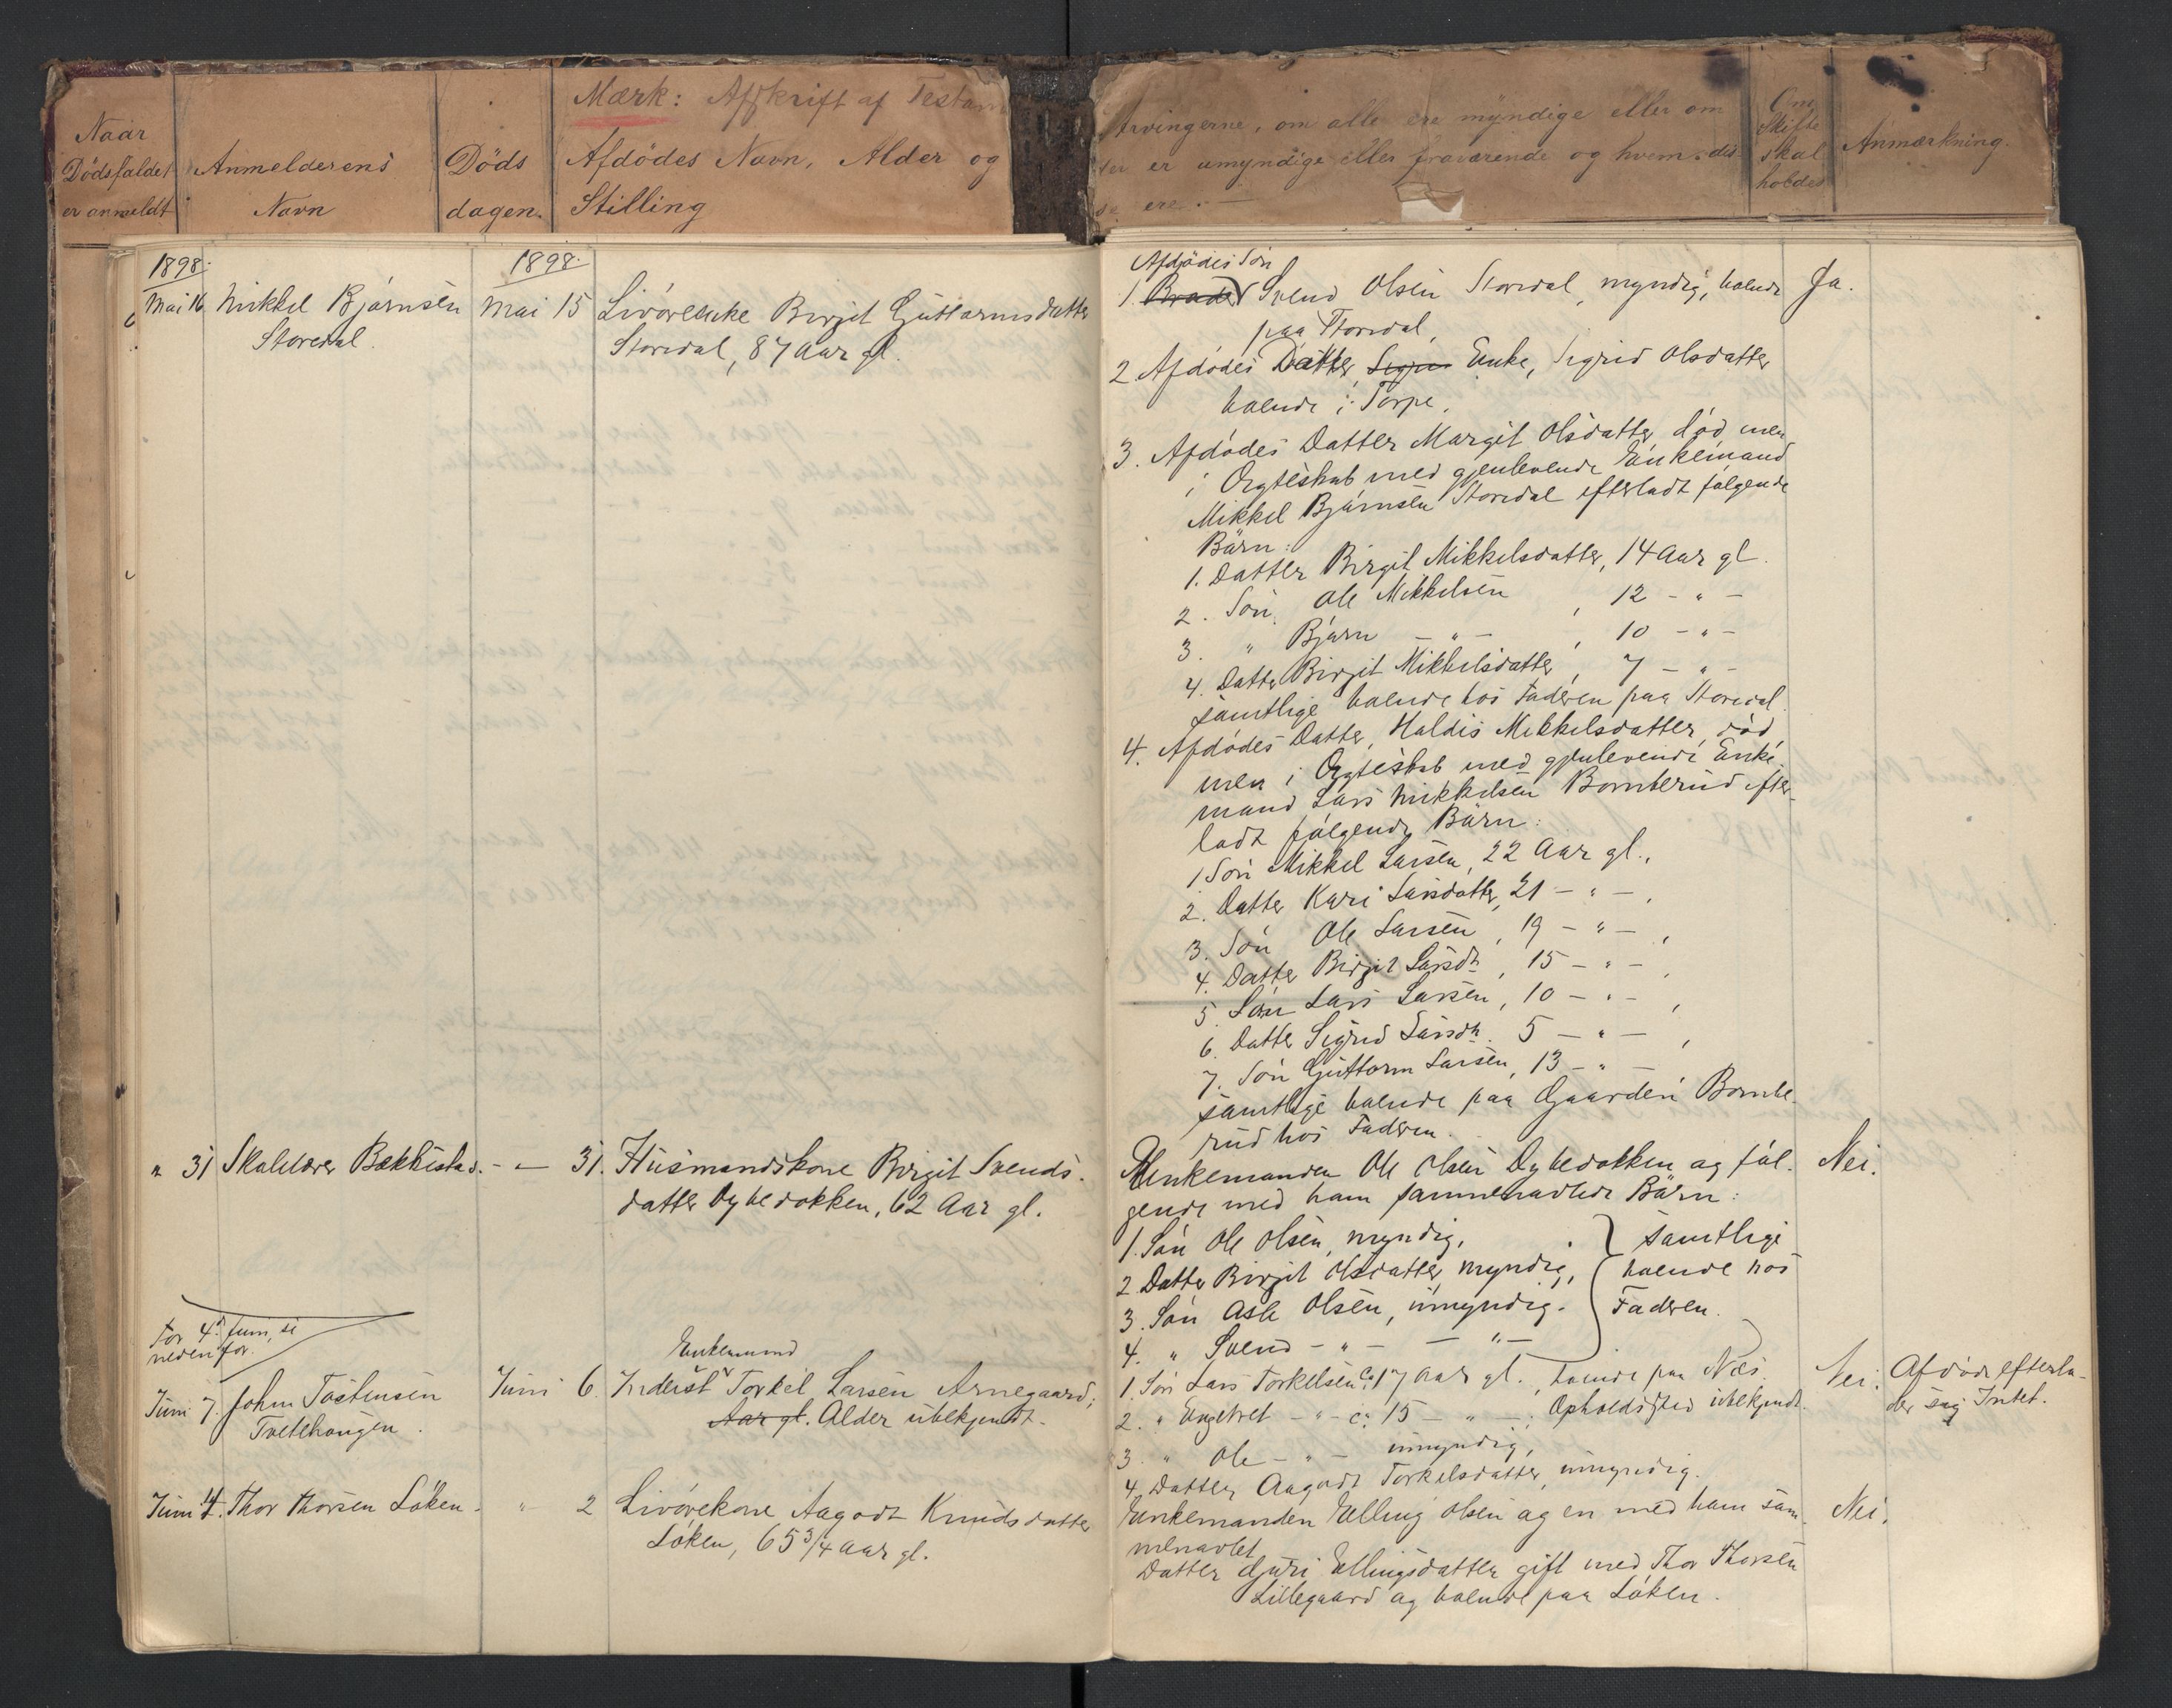 Mærk: Afskrift af Testam
Naar
Dödsfaldet
er anmeldt
Anmelderens
Navn
Döds
dagen.
Afdödes Navn, Alder og
Stilling
Arvingerne, om alle ere myndige eller om
er umyndige eller fraværende og hvem dis
se ere. —
Om
Skifte
skal
holdes
Anmærkning.
1898.
1898.
Mai 16
Mikkel Bjørnsen
Storedal.
Mai 15
Livøreenke Birgit Guttormsdatter
Storedal, 87 Aar gl.
Afdødes Søn
1. Broder Svend Olsen Storedal, myndig, boende
paa Storedal,
Ja.
2. Afdødes Datter, Sigri Enke, Sigrid Olsdatter
boende i Torpe.
3. Afdødes Datter Margit Olsdatter, død men
i Ægteskab med gjenlevende Enkemand
Mikkel Bjørnsen Storedal efterladt følgende
Børn:
1. Datter Birgit Mikkelsdatter, 14 Aar gl.
2. Søn Ole Mikkelsen, 12 - " -
3. " Bjørn - " -, 10 - " -
4. Datter Birgit Mikkelsdatter, 7 - " -
samtlige boende hos Faderen paa Storedal.
4. Afdødes Datter, Haldis Mikkelsdatter, død
men i Ægteskab med gjenlevende Enke-
mand Lars Mikkelsen Bomberud efter-
ladt følgende Børn:
1 Søn Mikkel Larsen, 22 Aar gl.,
2. Datter Kari Larsdatter, 21 - " -,
3. Søn Ole Larsen, 19 - " -,
4. Datter Birgit Larsdtr, 15 - " -,
5. Søn Lars Larsen, 10 - " -,
6. Datter Sigrid Larsdtr. 5 - " -,
7. Søn Guttorm Larsen, 13 - " -
samtlige boende paa Gaarden Bombe-
rud hos Faderen.
" 31
Skolelærer Bekkestad.
- — 31.
Husmandskone Birgit Svends-
datter Dybedokken, 62 Aar gl.
Enkemanden Ole Olsen Dybedokken og føl-
gende med ham sammenavlede Børn:
Nei.
1. Søn Ole Olsen, myndig,
2. Datter Birgit Olsdatter, myndig,
3. Søn Asle Olsen, umyndig.
4. " Svend - " - - " -
samtlige
boende hos
Faderen.
For 4d Juni, se
nedenfor.
Juni 7.
John Tostensen
Tretehaugen.
Juni 6.
Enkemand
Inderst Torkel Larsen Arnegaard,
Aar gl. Alder ubekjendt.
1. Søn Lars Torkelsen ca. 17 Aar gl., boende paa Næs.
2. " Engebret - " - ca. 15 - " -; Opholdssted ubekjendt.
3. " Ole - " - umyndig,
4. Datter Aagodt Torkelsdatter, umyndig.
Nei.
Afdøde efterla-
der sig Intet.
Juni 4.
Thor Thorsen Løken.
" 2
Livørekone Aagodt Knudsdatter
Løken, 65 3/4 Aar gl.
Enkemanden Elling Olsen og en med ham sam-
menavlet
Datter Guri Ellingsdatter gift med Thor Thorsen
Lillegaard og boende paa Løken.
Nei.